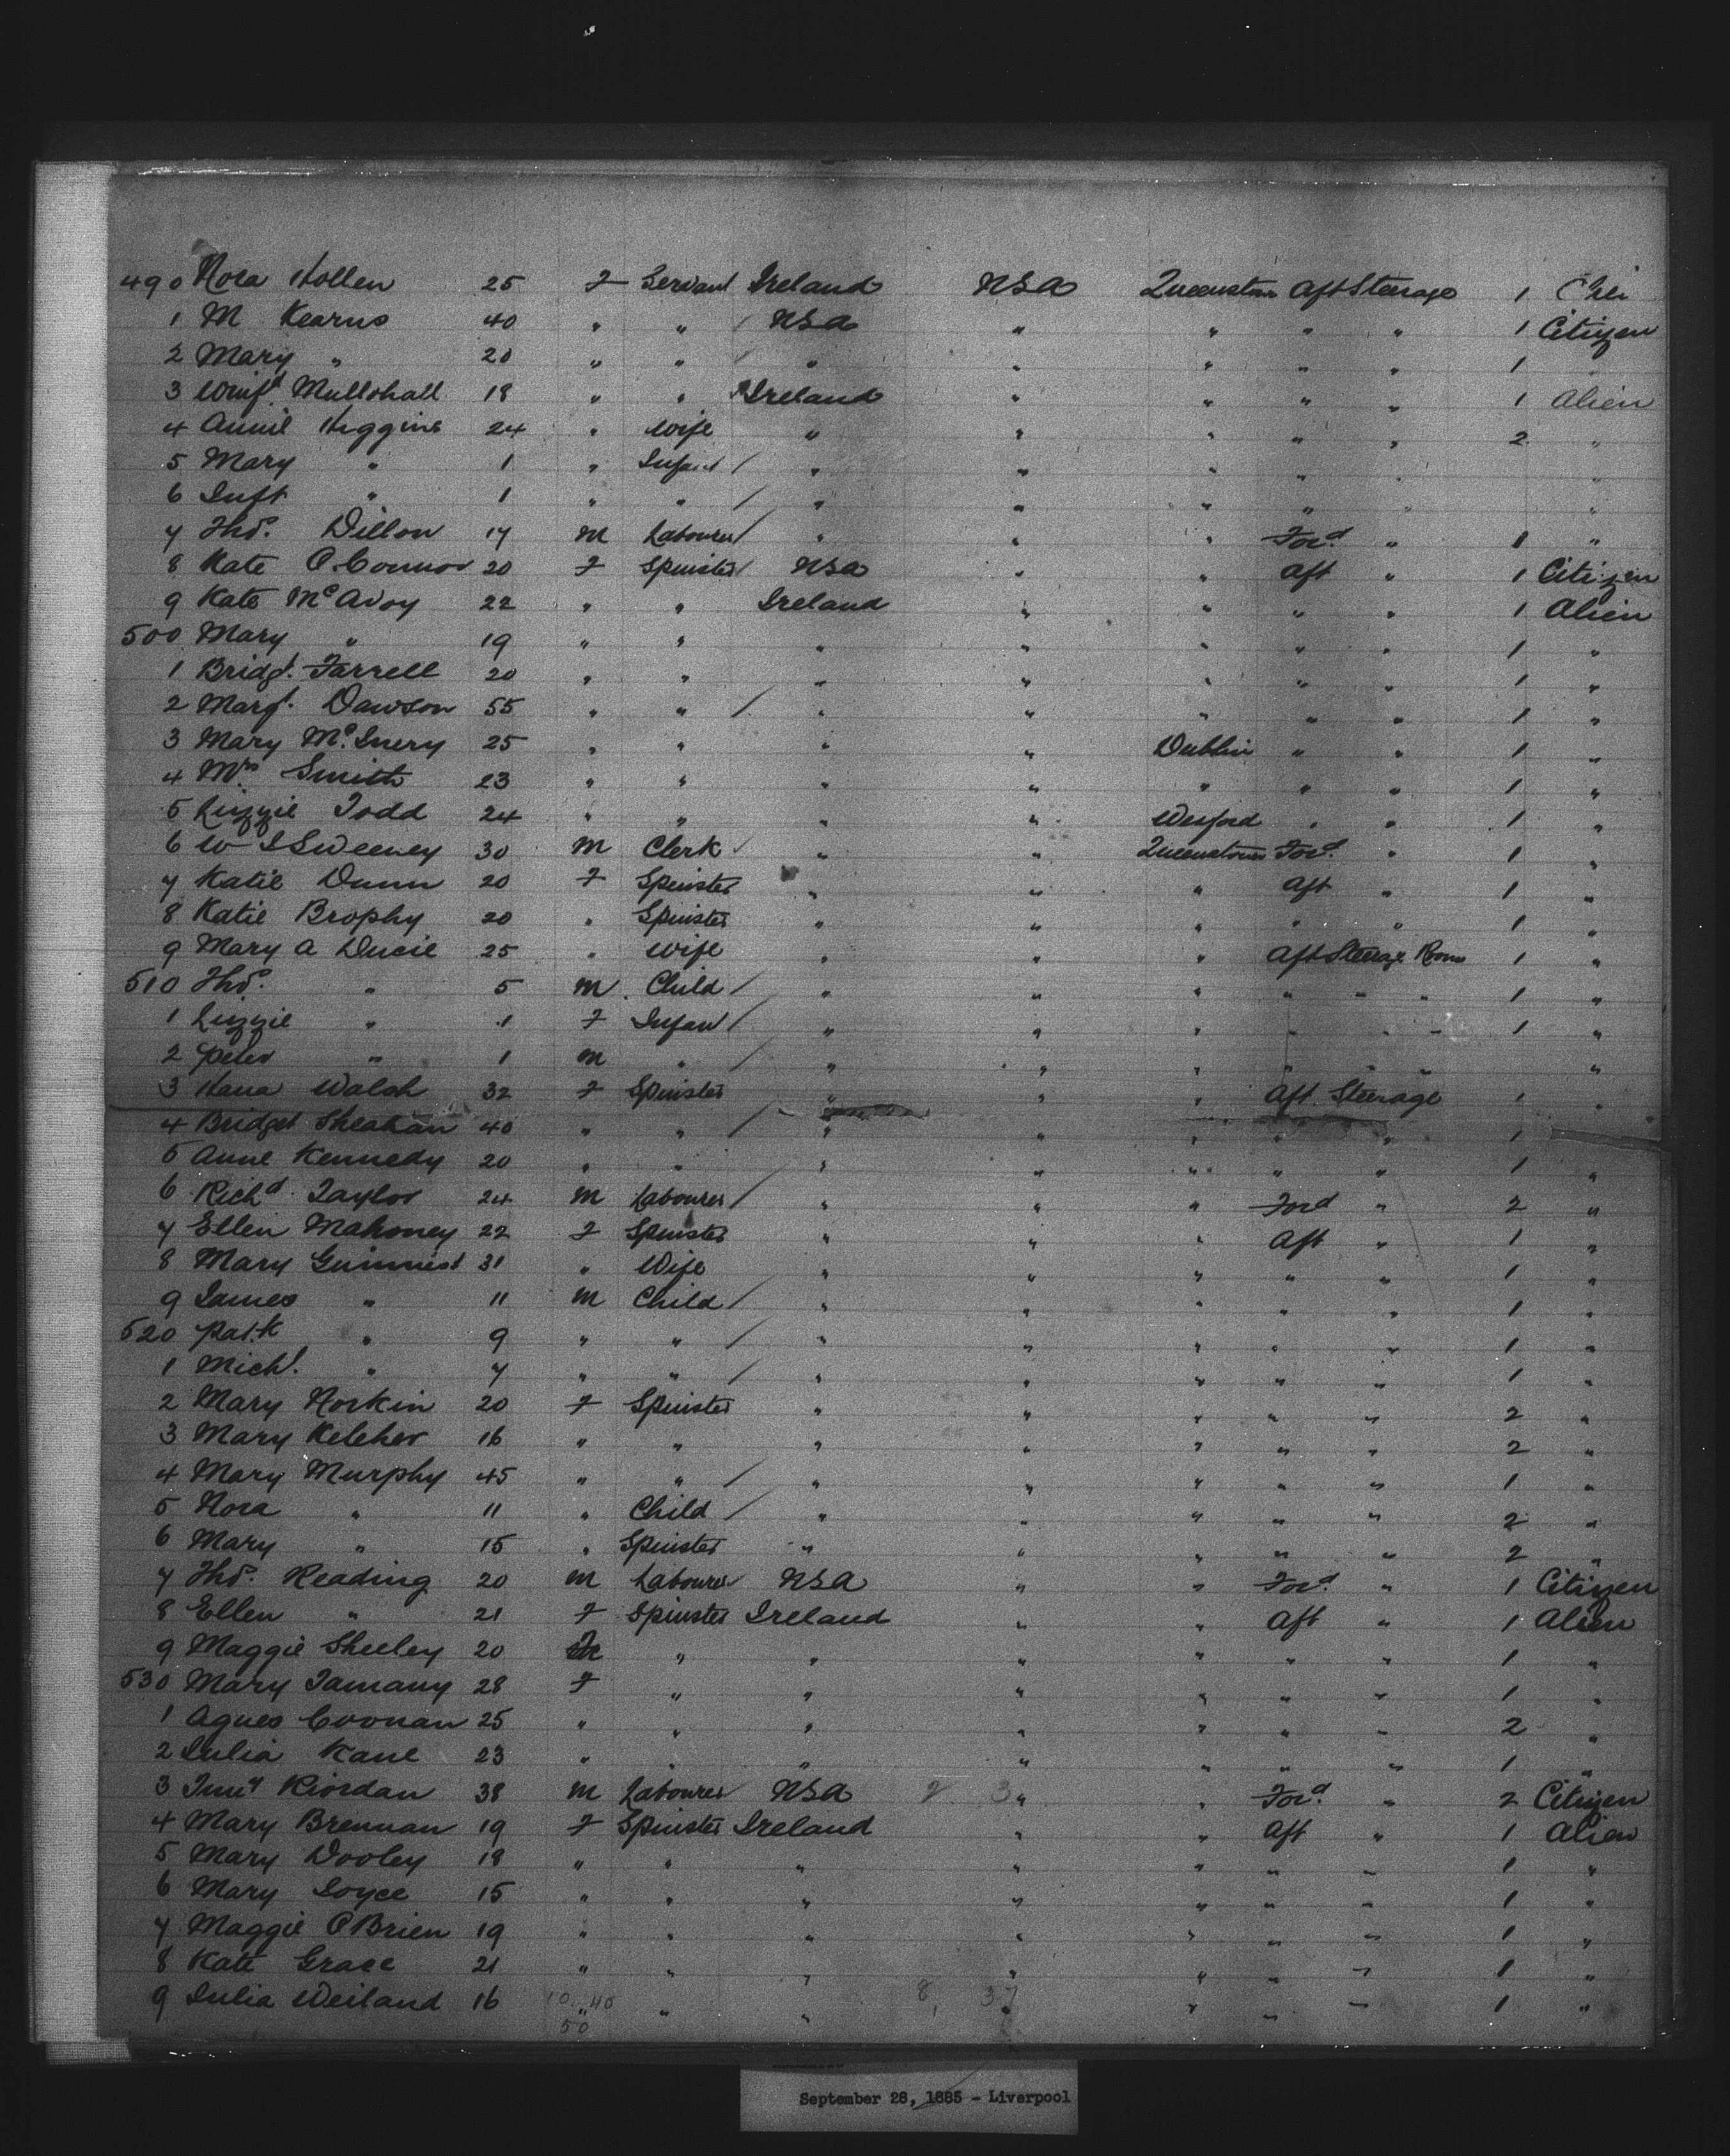 490 Nora Hollen 25 F Servant Ireland USA Queenstown Aft Steerage 1
1 M Kearns 40 " " / USA " " " " 1 Citizen
2 Mary " 20 " " / " " " " " 1
3 Winifd. Mullohall 18 " " Ireland " " " " 1 Alien
4 Annie Higgins 24 " Wife " " " " " 2 "
5 Mary " 1 " Infant / " " " " "
6 Inft " 1 " " / " " " " " "
7 Thos. Dillon 17 M Labourer / " " " Ford. " 1 "
8 Kate O'Connor 20 F Spinster / USA " " Aft " 1 Citizen
9 Kate McAvoy 22 " " Ireland " " " " 1 Alien
500 Mary " 19 " " " " " " " 1 "
1 Bridgt. Farrell 20 " " " " " " " 1 "
2 Margt. Dawson 55 " " / " " " " " 1 "
3 Mary McInery 25 " " " " Dublin " " 1 "
4 Mrs Smith 23 " " " " " " " 1 "
5 Lizzie Todd 24 " " " " Wexford " " 1 "
6 W J Sweeney 30 M Clerk / " " Queenstown Ford. " 1 "
7 Katie Dunn 20 F Spinster " " " Aft " 1 "
8 Katie Brophy 20 " Spinster " " " " " 1 "
9 Mary A Ducie 25 " Wife " " " Aft Steerage Room 1 "
510 Thos. " 5 M. Child / " " " " " " 1 "
1 Lizzie " 1 F Infan / " " " " " " 1 "
2 Peter " 1 M " / " " " " " " "
3 Hana Walsh 32 F Spinster " " " Aft Steerage 1 "
4 Bridget Sheahan 40 " " / " " " " " 1
5 Anne Kennedy 20 " " " " " " " 1 "
6 Richd. Taylor 24 M Labourer / " " " Ford " 2 "
7 Ellen Mahoney 22 F Spinster " " " Aft " 1 "
8 Mary 31 " Wife " " " " " 1 "
9 James " 11 M Child / " " " " " 1 "
520 Patk " 9 " " / " " " " " 1 "
1 Michl. " 7 " " / " " " " " 1 "
2 Mary Horkin 20 F Spinster " " " " " 2 "
3 Mary Keleher 16 " " " " " " " 2 "
4 Mary Murphy 45 " " / " " " " " 1 "
5 Nora " 11 " Child / " " " " " 2 "
6 Mary " 15 " Spinster " " " " " 2 "
7 Thos. Reading 20 M Labourer USA " " Ford. " 1 Citizen
8 Ellen " 21 F Spinster Ireland " " Aft " 1 Alien
9 Maggie Sheeley 20 F " " " " " " 1 "
530 Mary Tamany 28 F " " " " " " 1 "
1 Agnes Coonan 25 " " " " " " " 2 "
2 Julia Kane 23 " " " " " " " 1 "
3 Timy Riordan 38 M Labourer USA 2 3 " " Ford. " 2 Citizen
4 Mary Brennan 19 F Spinster Ireland " " Aft " 1 Alien
5 Mary Dooley 18 " " " " " " " 1 "
6 Mary Joyce 15 " " " " " " " 1 "
7 Maggie O'Brien 19 " " " " " " " 1 "
8 Kate Grace 21 " " " " " " " 1 "
9 Julia Weiland 16 10 " 40 " " 8 37 " " " 1 "
50
September 28, 1885 - Liverpool